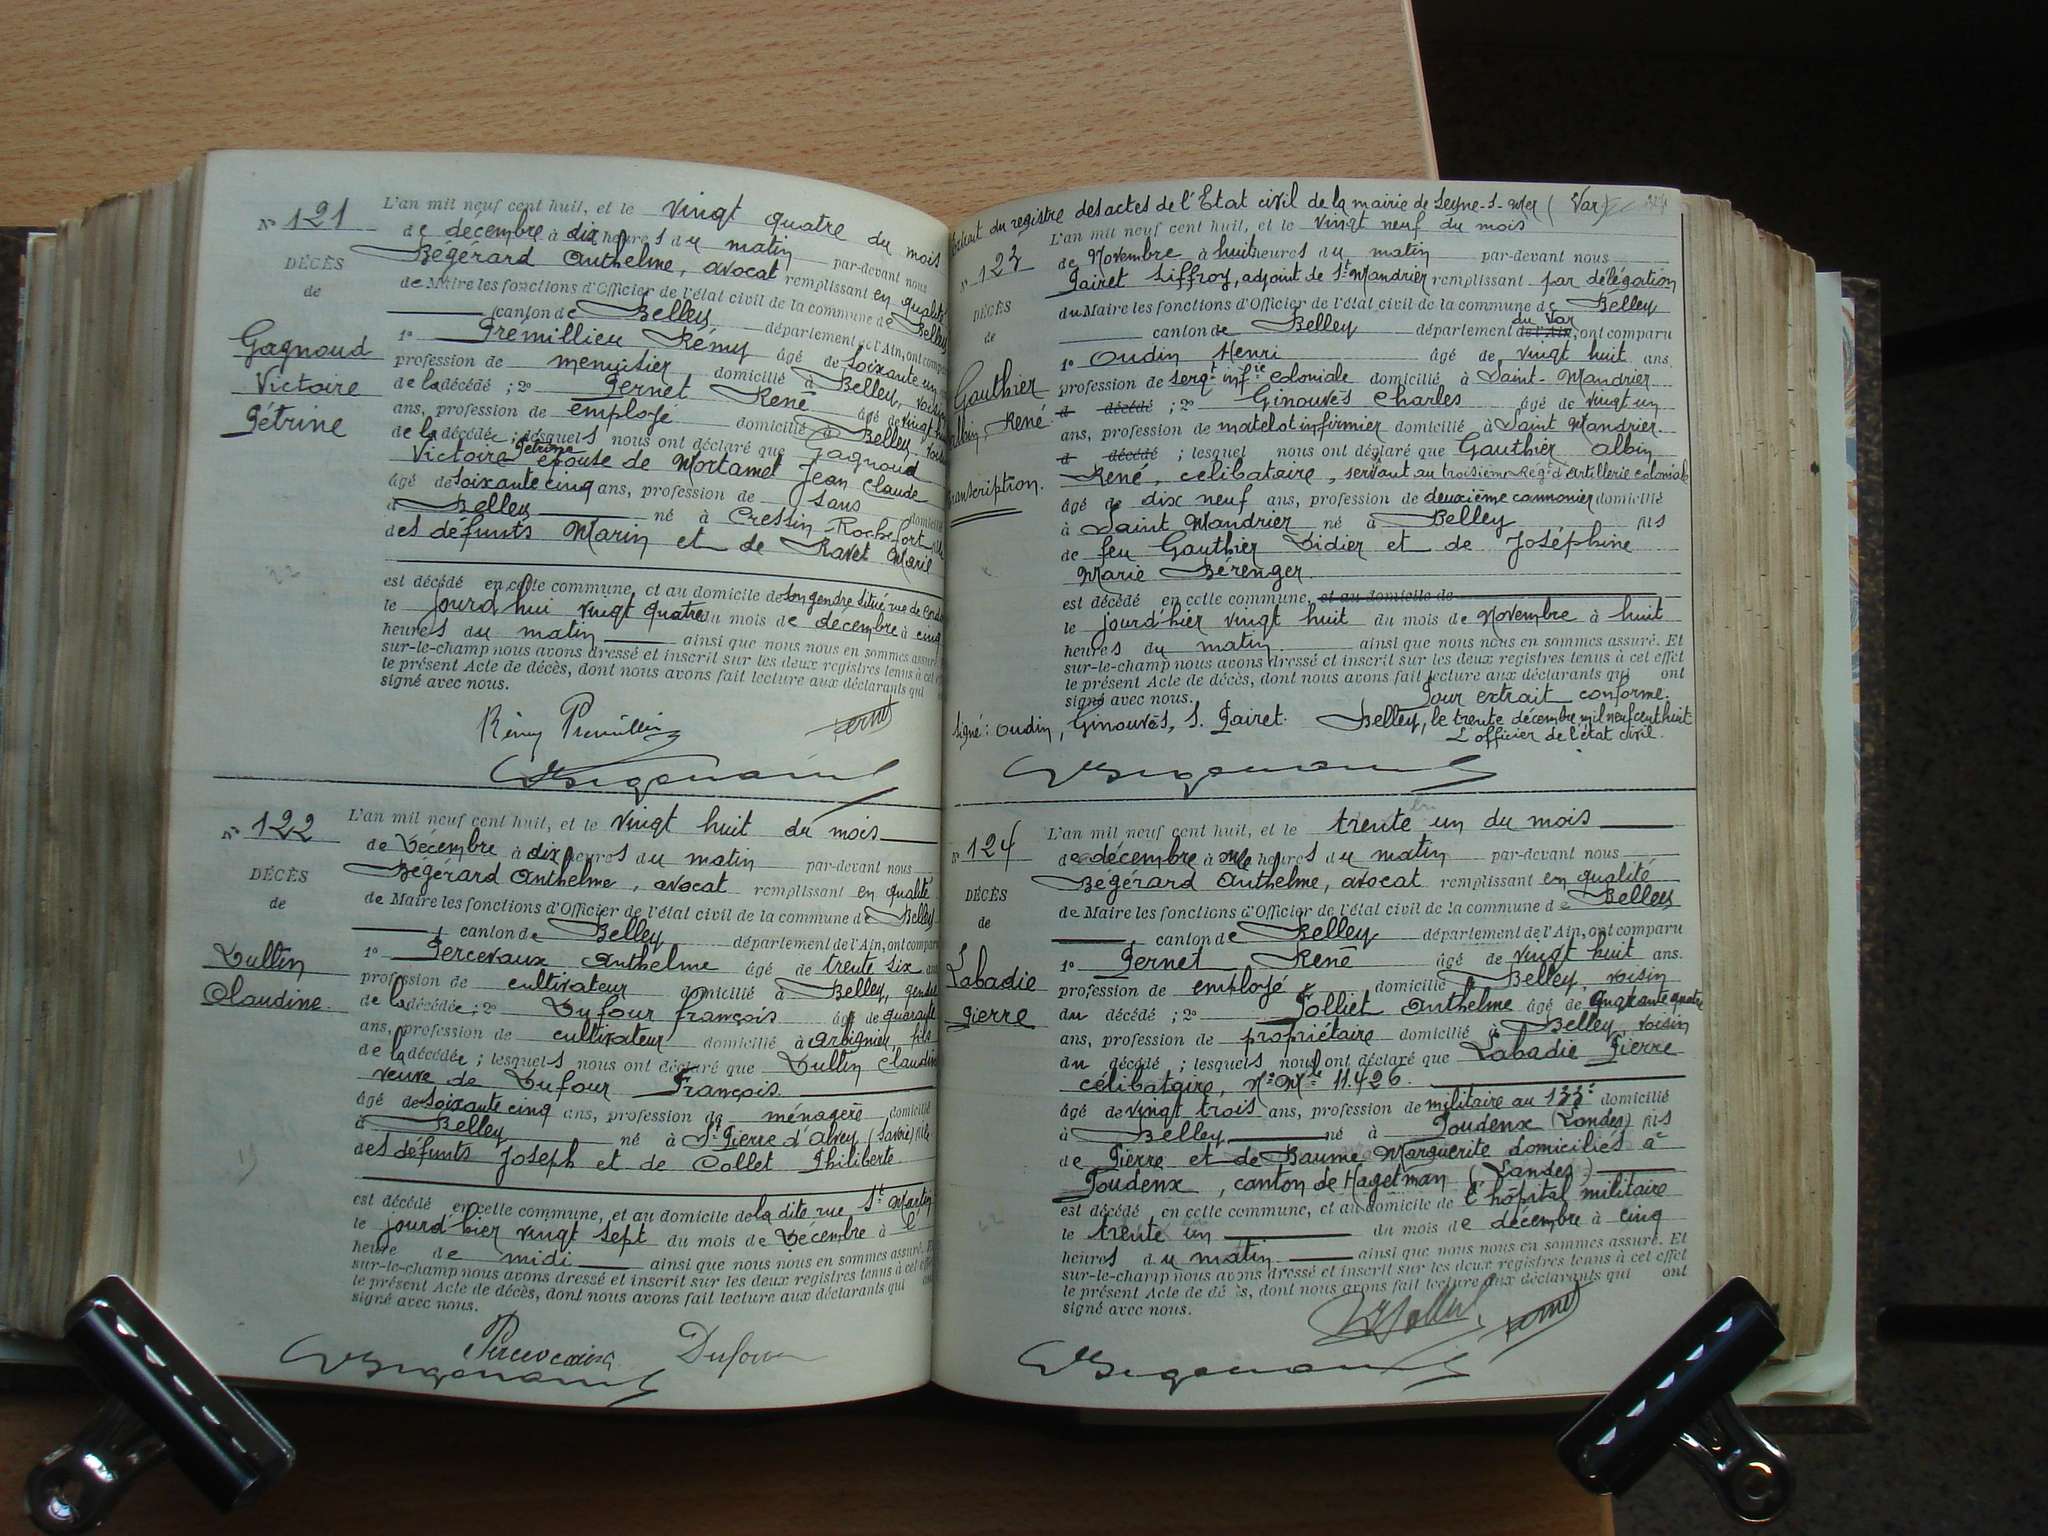 N° 121
DÉCÈS
de
Gagnoud
Victoire
Pétrine
L'an mil neuf cent huit, et le vingt quatre du mois
de décembre à dix heures du matin par-devant nous
Bégérard Anthelme, avocat remplissant en qualité
de Maire les fonctions d'Officier de l'état civil de la commune de Belley
canton de Belley département de l'Ain, ont comparu
1° Prémillieu Rémy âgé de soixante un
profession de menuisier domicilié à Belley, voisin
de la décédé ; 2° Pernet René âgé de vingt huit
ans, profession de employé domicilié à Belley
de la décédée ; lesquels nous ont déclaré que Gagnoud
Victoire Pétrine épouse de Mortamet Jean Claude
âgé de soixante cinq ans, profession de sans domicilié
à Belley né à Cressin-Rochefort fille
des défunts Marin et de Ravet Marie
est décédé en cette commune, et au domicile de son gendre situé rue de
le jourd'hui vingt quatre du mois de décembre à cinq
heures du matin ainsi que nous nous en sommes assuré.
sur-le-champ nous avons dressé et inscrit sur les deux registres tenus à cet effet
le présent Acte de décès, dont nous avons fait lecture aux déclarants qui
signé avec nous.
Rémy Premillieu
N° 122
DÉCÈS
de
Dullin
Claudine
L'an mil neuf cent huit, et le vingt huit du mois
de Décembre à dix heures du matin par-devant nous
Bégérard Anthelme, avocat remplissant en qualité
de Maire les fonctions d'Officier de l'état civil de la commune de Belley
canton de Belley département de l'Ain, ont comparu
1° Percevaux Anthelme âgé de trente six ans
profession de cultivateur domicilié à Belley, gendre
de la décédée ; 2° Dufour François âgé de quarante
ans, profession de cultivateur domicilié à Arbignieu, fils
de la décédée ; lesquels nous ont déclaré que Dullin Claudine
veuve de Dufour François
âgé de soixante cinq ans, profession de ménagère domicilié
à Belley né à St Pierre d'Alvey (Savoie) fille
des défunts Joseph et de Collet Philiberte
est décédé en cette commune, et au domicile de la dite rue St Martin
le jourd'hier vingt sept du mois de Décembre à l'
heure de midi ainsi que nous nous en sommes assuré. Et
sur-le-champ nous avons dressé et inscrit sur les deux registres tenus à cet effet
le présent Acte de décès, dont nous avons fait lecture aux déclarants qui ont
signé avec nous.
Percevaux Dufour
Extrait du registre des actes de l'Etat civil de la mairie de Seyne-s-Mer (Var)
N° 123
DÉCÈS
de
Gauthier
Albin, René
Transcription.
L'an mil neuf cent huit, et le vingt neuf du mois
de Novembre à huit heures du matin par-devant nous
Pairet Siffroy, adjoint de St Mandrier remplissant par délégation
du Maire les fonctions d'Officier de l'état civil de la commune de Belley
canton de Belley département de l'Ain du Var, ont comparu
1° Oudin Henri âgé de vingt huit ans.
profession de sergt infie coloniale domicilié à Saint-Mandrier
d décédé ; 2° Ginouvès Charles âgé de vingt un
ans, profession de matelot infirmier domicilié à Saint Mandrier
d décédé ; lesquel nous ont déclaré que Gauthier Albin
René, célibataire, servant au troisième Régt d'Artillerie coloniale
âgé de dix neuf ans, profession de deuxième cannonier domicilié
à Saint Mandrier né à Belley fils
de feu Gauthier Didier et de Joséphine
Marie Bérenger
est décédé en cette commune, et au domicile de
le jourd'hier vingt huit du mois de Novembre à huit
heures du matin ainsi que nous nous en sommes assuré. Et
sur-le-champ nous avons dressé et inscrit sur les deux registres tenus à cet effet
le présent Acte de décès, dont nous avons fait lecture aux déclarants qui ont
signé avec nous. Pour extrait conforme.
Signé : Oudin, Ginouvès, S. Pairet. Belley, le trente décembre mil neuf cent huit
L'officier de l'état civil.
N° 124
DÉCÈS
de
Labadie
Pierre
L'an mil neuf cent huit, et le trente un du mois
de décembre à onze heures du matin par-devant nous
Bégérard Anthelme, avocat remplissant en qualité
de Maire les fonctions d'Officier de l'état civil de la commune de Belley
canton de Belley département de l'Ain, ont comparu
1° Pernet René âgé de vingt huit ans.
profession de employé domicilié à Belley, voisin
du décédé ; 2° Folliet Anthelme âgé de quarante quatre
ans, profession de propriétaire domicilié à Belley, voisin
du décédé ; lesquels nous ont déclaré que Labadie Pierre
célibataire, N° Mle 11.426.
âgé de vingt trois ans, profession de militaire au 133e domicilié
à Belley né à Poudenx (Landes) fils
de Pierre et de Baume Marguerite domiciliés à
Poudenx, canton de Hagetman (Landes)
est décédé en cette commune, et au domicile de l'hôpital militaire
le trente un du mois de décembre à cinq
heures du matin ainsi que nous nous en sommes assuré. Et
sur-le-champ nous avons dressé et inscrit sur les deux registres tenus à cet effet
le présent Acte de décès, dont nous avons fait lecture aux déclarants qui ont
signé avec nous.